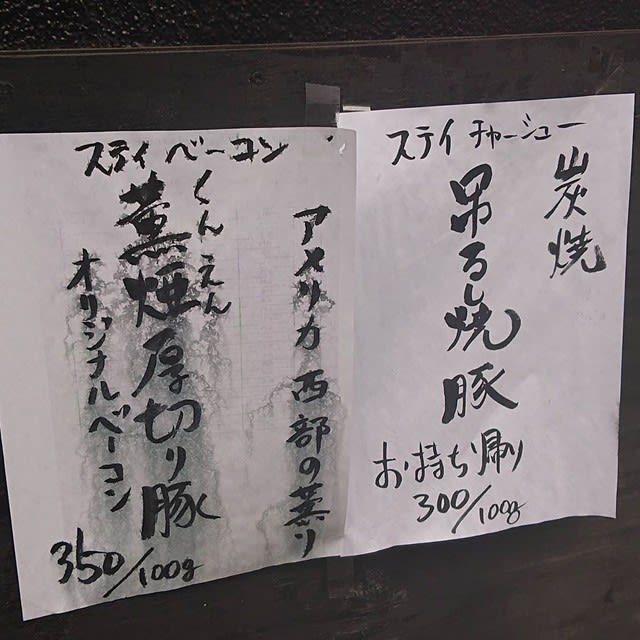 ステイ チャーシュー
炭焼
吊るし焼豚
お持ち帰り
300/100g
ステイ ベーコン
アメリカ西部の薫り
くんえん
薫煙厚切り豚
オリジナルベーコン
350/100g